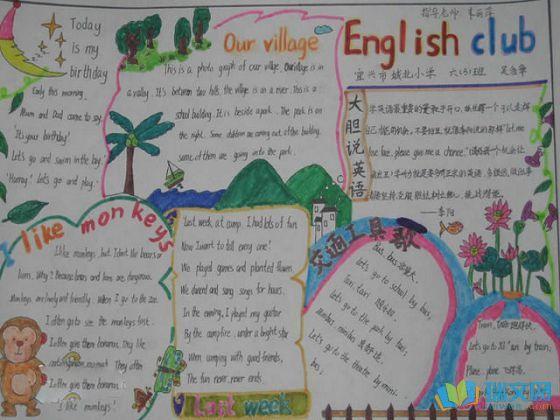 Today
is my
birthday
Early this morning,
Mum and Dad come to say
"It's your birthday!
Let's go and swim in the bay.
"Hurray! Let's go and play.
Our village
This is a photo graph of our village. Our village is in
a valley. It's between two hills. the village is on a river. This is a
school building. It is beside a park. The park is on
the right. Some children are coming out of the building.
some of them are going into the park.
指导老师
English club
宜兴市城北小学 六(3)班
大胆说英语
学英语最重要的是敢于开口
"let me
lose face, please give me a chance."
——李阳
I like monkeys
I like monkeys, but I don't like bears or
lions. Why? Because bears and lions are dangerous.
Monkeys are lively and friendly. When I go to the zoo.
I often go to see the monkeys first.
I often give them bananas. They like
They often
I often give them bananas.
"I like monkeys!"
Last week at camp. I had lots of fun
Now I want to tell every one!
We played games and planted flowers.
We danced and sang songs for hours.
In the evening, I played my guitar
By the campfire, under a bright star
When camping with good friends,
The fun never, never ends.
Last week
交通工具歌
Bus, bus
Let's go to school by bus.
Taxi, taxi
Let's go to the park by bus.
Minibus, minibus
Let's go to the theatre by mini-
bus.
Train,
Let's go to Xi'an by train.
Plane, plane
瑞文网